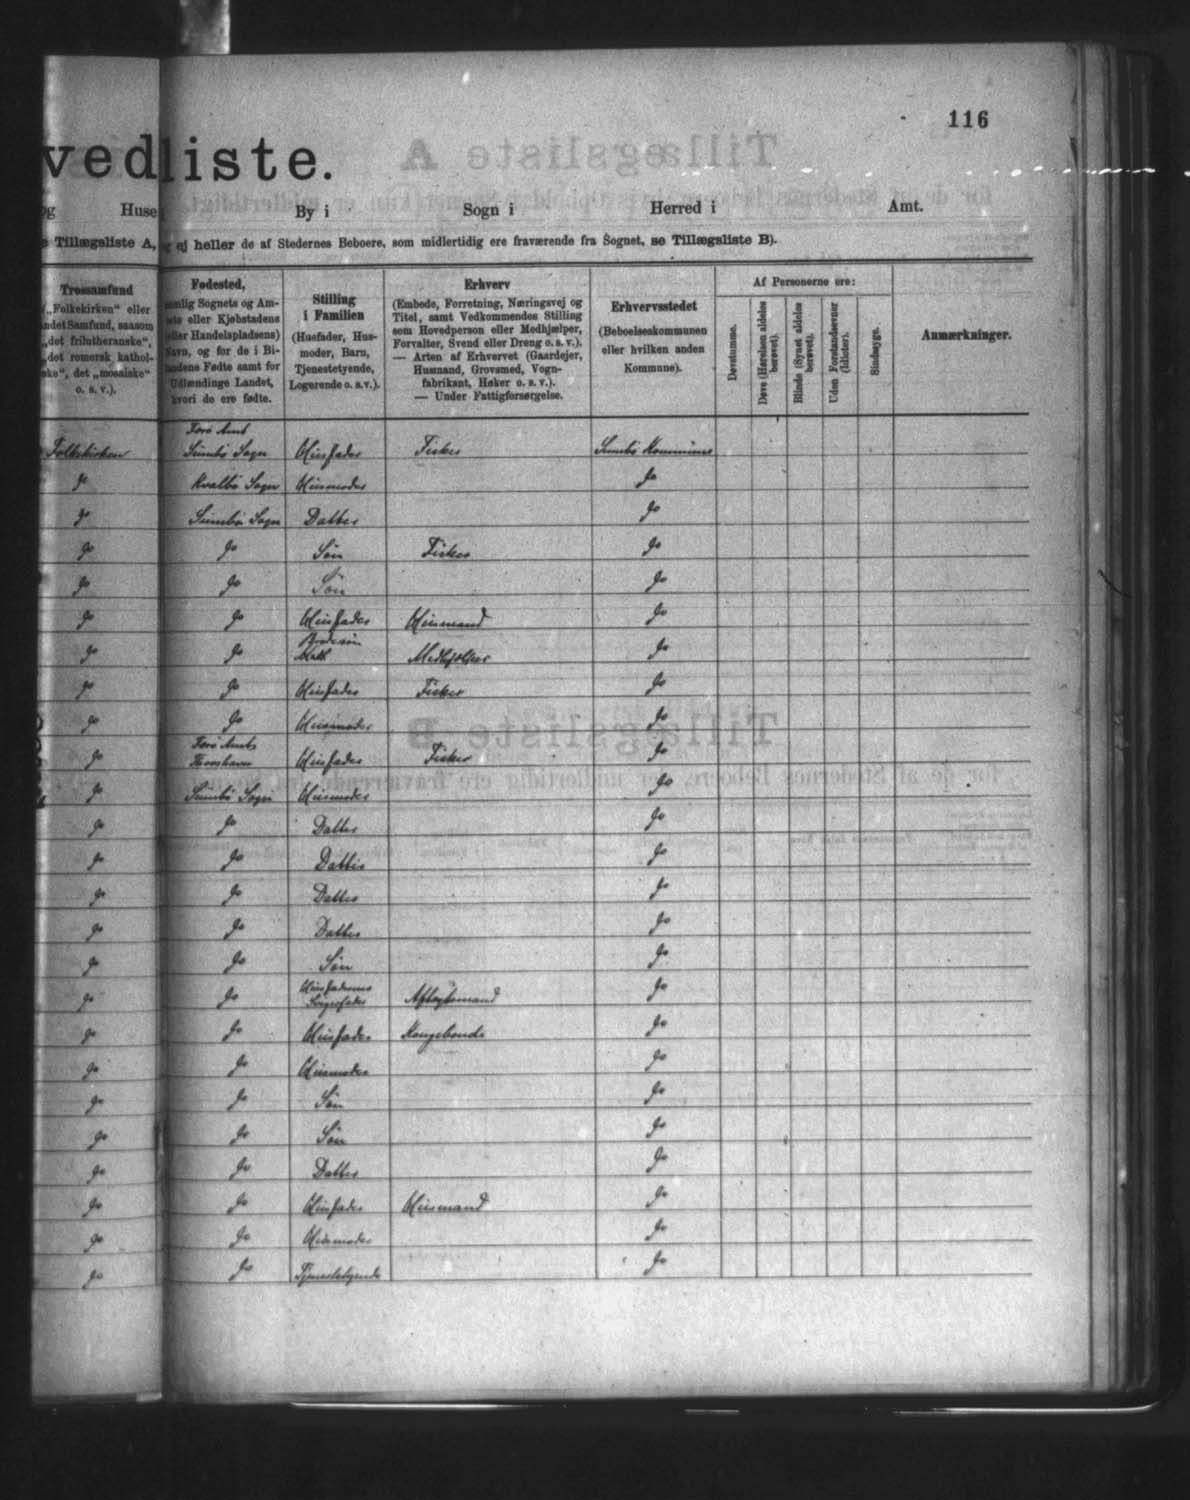 116
vedliste.
og Huse By i Sogn i Herred i Amt.
e Tillægsliste A, og ej heller de af Stedernes Beboere, som midlertidig ere fraværende fra Sognet, se Tillægsliste B).
Trossamfund
(„Folkekirken“ eller
andet Samfund, saasom
„det frilutheranske“,
„det romersk kathol-
ske“, det „mosaiske“
o. s. v.).
Fødested,
nemlig Sognets og Am-
tets eller Kjøbstadens
(eller Handelspladsens)
Navn, og for de i Bi-
landene Fødte samt for
Udlændinge Landet,
hvori de ere fødte.
Stilling
i Familien
(Husfader, Hus-
moder, Barn,
Tjenestetyende,
Logerende o. s. v.).
Erhverv
(Embede, Forretning, Næringsvej og
Titel, samt Vedkommendes Stilling
som Hovedperson eller Medhjælper,
Forvalter, Svend eller Dreng o. s. v.).
— Arten af Erhvervet (Gaardejer,
Husmand, Grovsmed, Vogn-
fabrikant, Høker o. s. v.).
— Under Fattigforsørgelse.
Erhvervsstedet
(Beboelseskommunen
eller hvilken anden
Kommune).
Af Personerne ere:
Døvstumme.
Døve (Hørelsen aldeles
berøvet).
Blinde (Synet aldeles
berøvet).
Uden Forstandsevner
(Idioter).
Sindssyge.
Anmærkninger.
Færø Amt
Folkekirken Sumbø Sogn Husfader Fisker Sumbø Kommune
Do Kvalbø Sogn Husmoder Do
Do Sumbø Sogn Datter Do
Do Do Søn Fisker Do
Do Do Søn Do
Do Do Husfader Husmand Do
Do Do Brodersøn Medhjælper Do
Do Do Husfader Fisker Do
Do Do Husmoder Do
Færø Amt
Do Thorshavn Husfader Fisker Do
Do Sumbø Sogn Husmoder Do
Do Do Datter Do
Do Do Datter Do
Do Do Datter Do
Do Do Datter Do
Do Do Søn Do
Husfaderens
Do Do Svigerfader Aftægtsmand Do
Do Do Husfader Kongsbonde Do
Do Do Husmoder Do
Do Do Søn Do
Do Do Søn Do
Do Do Datter Do
Do Do Husfader Husmand Do
Do Do Husmoder Do
Do Do Tjenestetyende Do